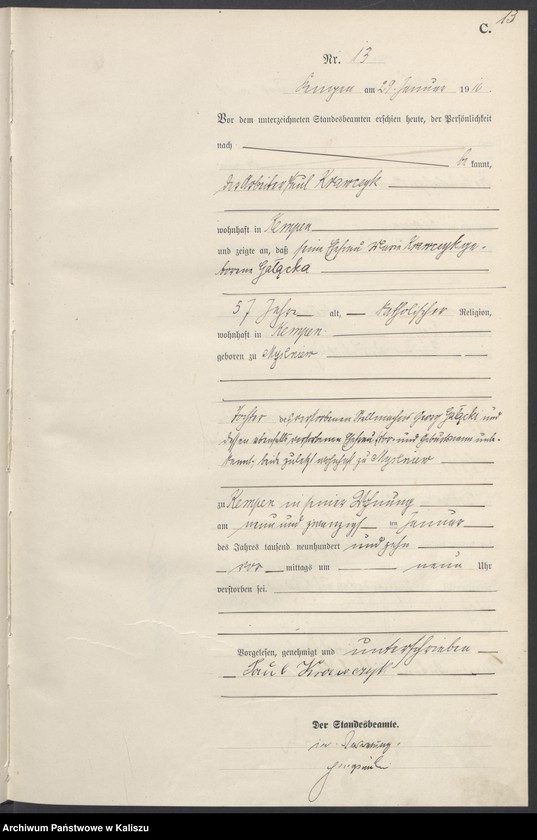 13
C.
Nr. 13
Kempen am 29. Januar 1910.
Vor dem unterzeichneten Standesbeamten erschien heute, der Persönlichkeit
nach
be kannt,
der Arbeiter Paul Krawczyk
wohnhaft in Kempen
und zeigte an, daß seine Ehefrau Marie Krawczyk ge-
borene Gałącka
57 Jahre alt, katholischer Religion,
wohnhaft in Kempen
geboren zu Myslniew
Tochter des verstorbenen Stellmachers Georg Gałącki und
dessen ebenfalls verstorbene Ehefrau, Vor- und Geburtsname unbe-
kannt, beide zuletzt wohnhaft zu Myslniew
zu Kempen in seiner Wohnung
am neun und zwanzigsten Januar
des Jahres tausend neunhundert und zehn
vor mittags um neun Uhr
verstorben sei.
Vorgelesen, genehmigt und unterschrieben
Paul Krawczyk
Der Standesbeamte.
in Vertretung.
Archiwum Państwowe w Kaliszu